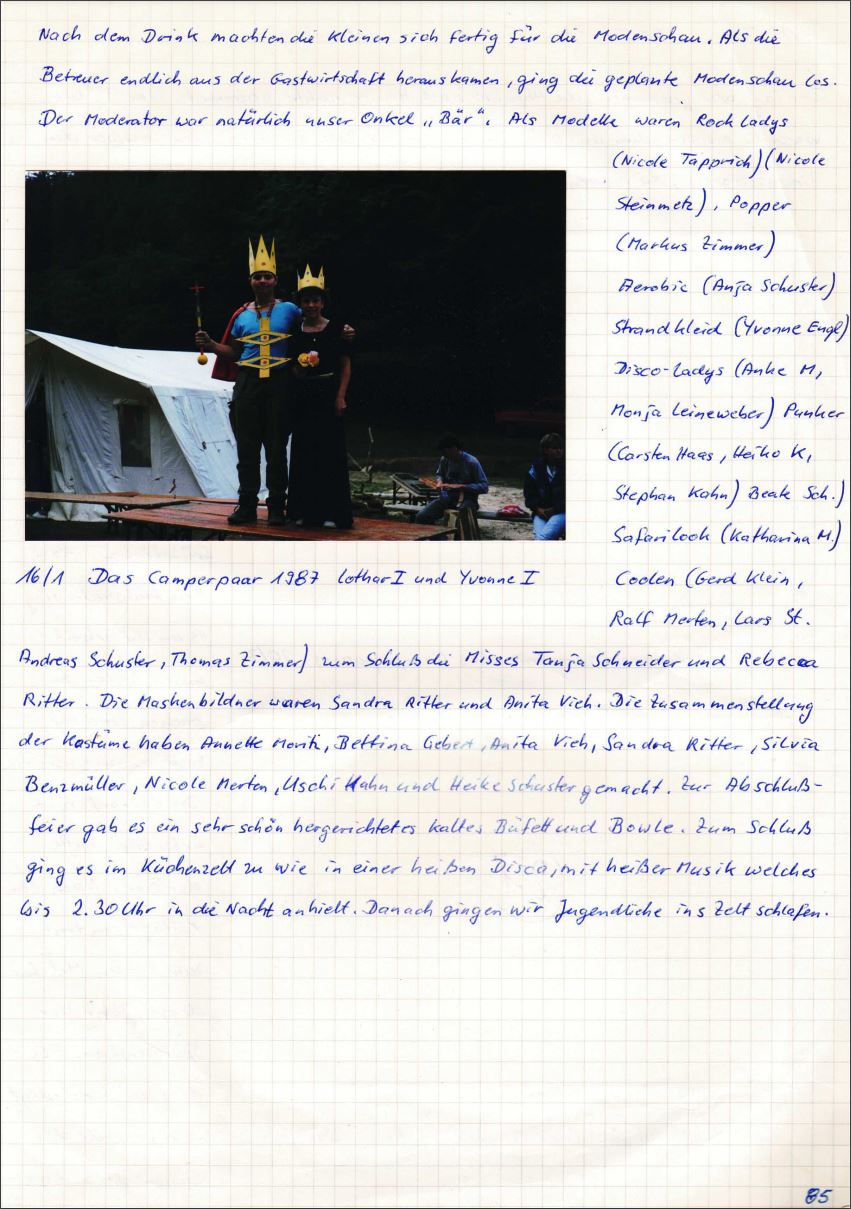 Nach dem Drink machten die Kleinen sich fertig für die Modenschau. Als die
Betreuer endlich aus der Gastwirtschaft herauskamen, ging die geplante Modenschau los.
Der Moderator war natürlich unser Onkel „Bär“. Als Modelle waren Rock Ladys
(Nicole Tapprich) (Nicole
Steinmetz), Popper
(Markus Zimmer)
Aerobic (Anja Schuster)
Strandkleid (Yvonne Engl)
Disco-Ladys (Anke M,
Monja Leineweber) Punker
(Carsten Haas, Heiko K,
Stephan Kahn) Beate Sch.)
Safarilook (Katharina M.)
Coolen (Gerd Klein,
Ralf Merten, Lars St.
16/1 Das Camperpaar 1987 Lothar I und Yvonne I
Andreas Schuster, Thomas Zimmer) zum Schluß die Misses Tanja Schneider und Rebecca
Ritter. Die Maskenbildner waren Sandra Ritter und Anita Vieh. Die Zusammenstellung
der Kostüme haben Annette Moritz, Bettina Gebert, Anita Vieh, Sandra Ritter, Silvia
Benzmüller, Nicole Merten, Uschi Hahn und Heike Schuster gemacht. Zur Abschluß-
feier gab es ein sehr schön hergerichtetes kaltes Büfett und Bowle. Zum Schluß
ging es im Küchenzelt zu wie in einer heißen Disco, mit heißer Musik welches
bis 2.30 Uhr in die Nacht anhielt. Danach gingen wir Jugendliche ins Zelt schlafen.
85